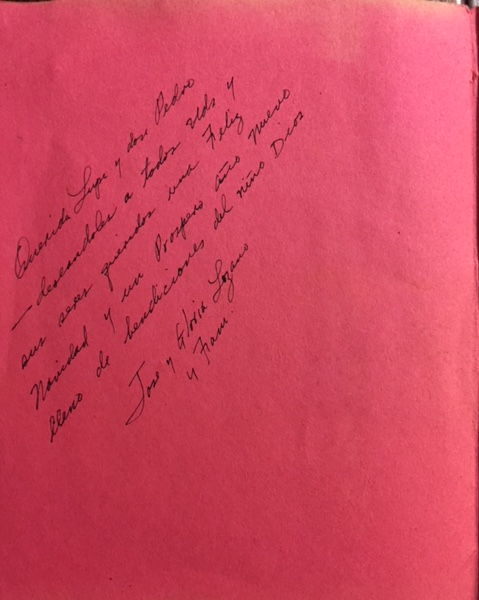 Querida Lupe y don Pedro
— deseandoles a todos Uds. y
sus seres queridos una Feliz
Navidad y un Prospero año nuevo
lleno de bendiciones del niño Dios
Jose y Gloria Lozano
y Fam.